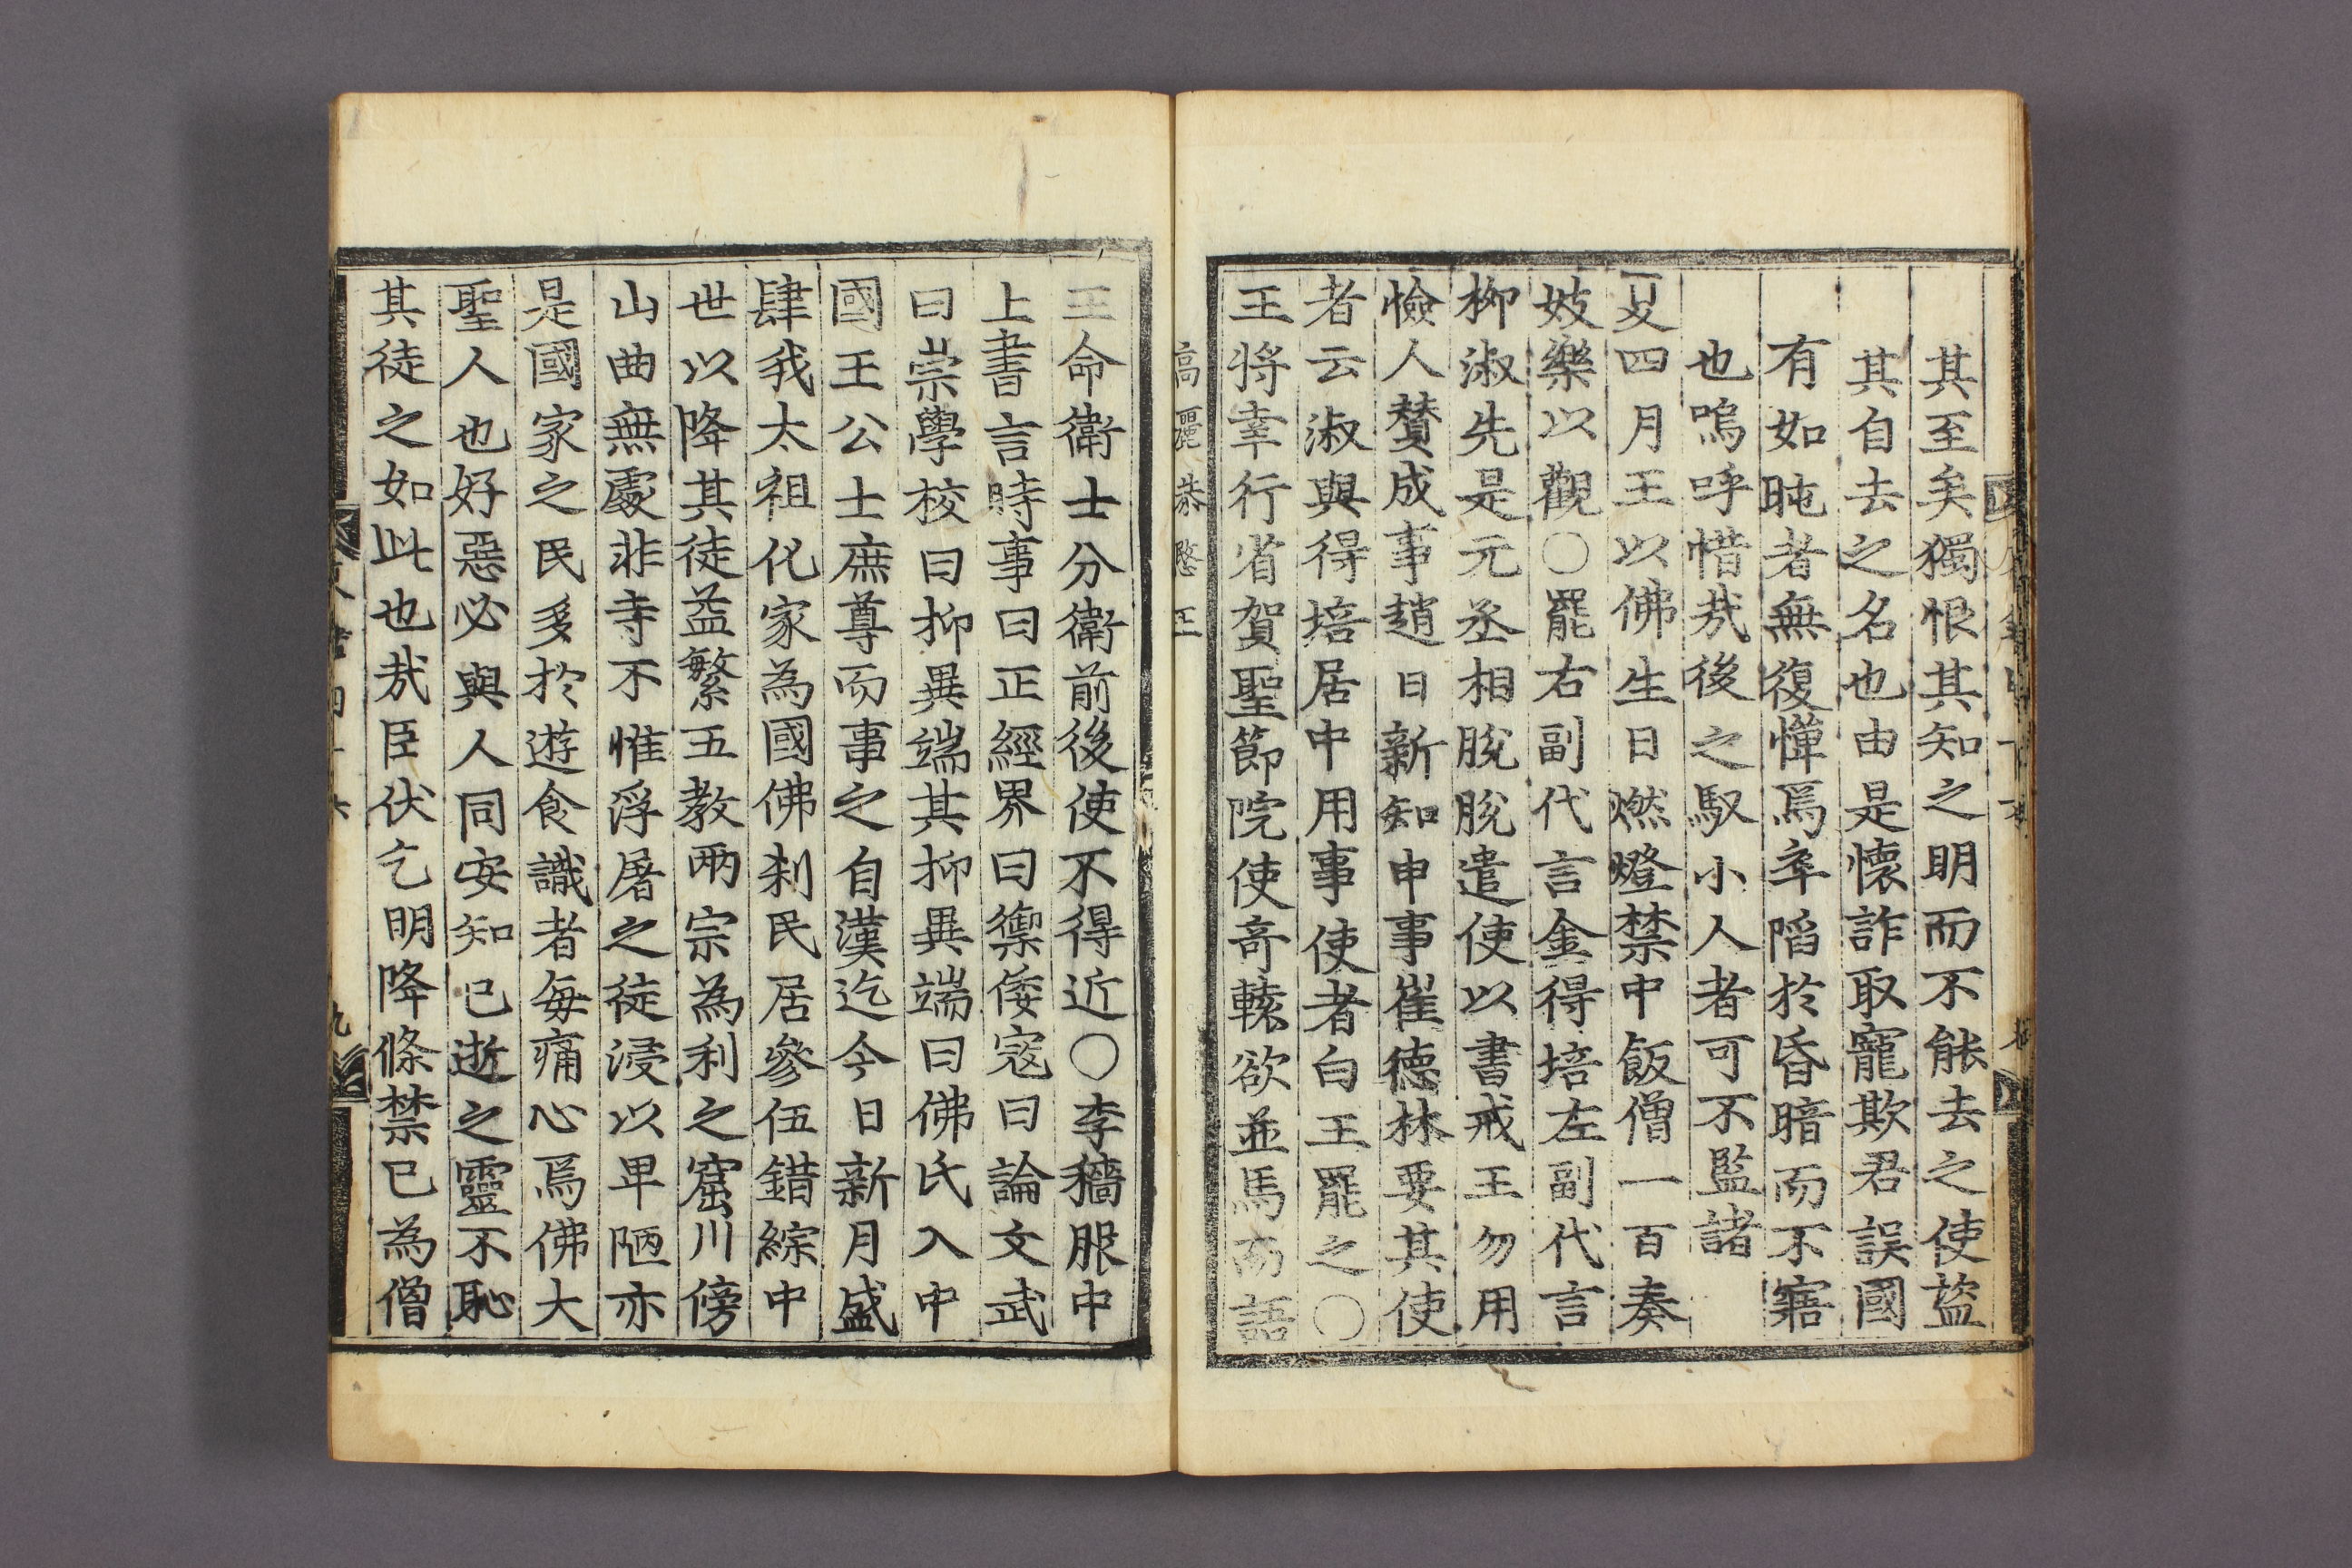 其至矣獨恨其知之明而不能去之使盜
其自去之名也由是懷詐取寵欺君誤國
有如盹者無復憚焉卒陷於昏暗而不寤
也嗚呼惜㢤後之馭小人者可不監諸
夏四月王以佛生日燃燈禁中飯僧一百奏
妓樂以觀〇罷右副代言金得培左副代言
柳淑先是元丞相脫脫遣使以書戒王勿用
憸人賛成事趙日新知申事崔德林要其使
者云淑與得培居中用事使者白王罷之〇
王將幸行省賀聖節院使奇轅欲並馬而語
高麗恭愍王
王命衛士分衛前後使不得近〇李穡服中
上書言時事曰正經界曰禦倭寇曰論文武
曰崇學校曰抑異端其抑異端曰佛氏入中
國王公士庶尊而事之自漢迄今日新月盛
肆我太祖化家為國佛刹民居參伍錯綜中
世以降其徒益繁五教兩宗為利之窟川傍
山曲無處非寺不惟浮屠之徒浸以卑陋亦
是國家之民多於遊食識者每痛心焉佛大
聖人也好惡必與人同安知已逝之靈不恥
其徒之如此也㢤臣伏乞明降條禁已為僧